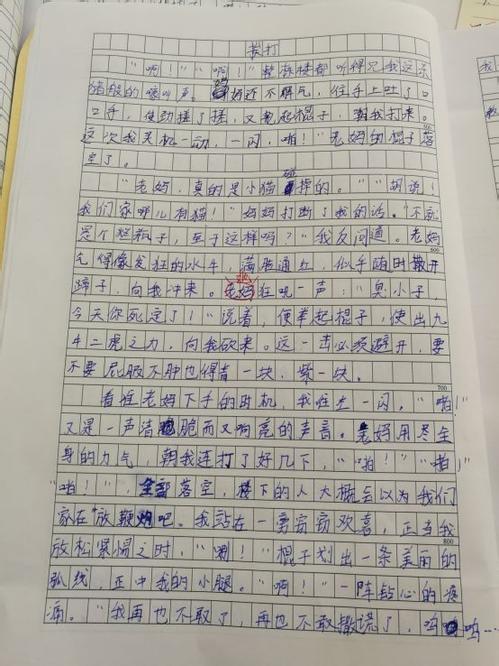 挨打
“啊！”“啊！”整栋楼都听得见我这杀
猪般的嚎叫声。妈妈还不解气，往手上吐了口
口手，使劲搓了搓，又抡起棍子，朝我打来。
这次我灵机一动，一闪，啪！”老妈的棍子落
空了。
“老妈，真的是小猫碰掉的。”“胡说！
我们家哪儿有猫！”妈妈打断了我的话。“不就
是个烂瓶子，至于这样吗？”我反问道。老妈
气得像发狂的水牛，满脸通红，似乎随时撒开
蹄子，向我冲来。老妈狂吼一声：“臭小子，
600
今天你死定了！”说着，便举起棍子，使出九
牛二虎之力，向我砍来。这一击必须避开，要
不要屁股不肿也得青一块，紫一块。
看准老妈下手的时机，我往左一闪，“啪！”
700
又是一声清脆而又响亮的声音。老妈用尽全
身的力气，朝我连打了好几下，“啪！”“啪！
“啪！”，全部落空，楼下的人大概会以为我们
家在“放鞭炮”吧。我站在一旁窃窃欢喜，正当我
放松紧惕之时，“唰！”棍子划出一条美丽的
800
弧线，正中我的小腿。“啊！”一阵钻心的疼
痛。“我再也不敢了，再也不敢撒谎了，呜呜…